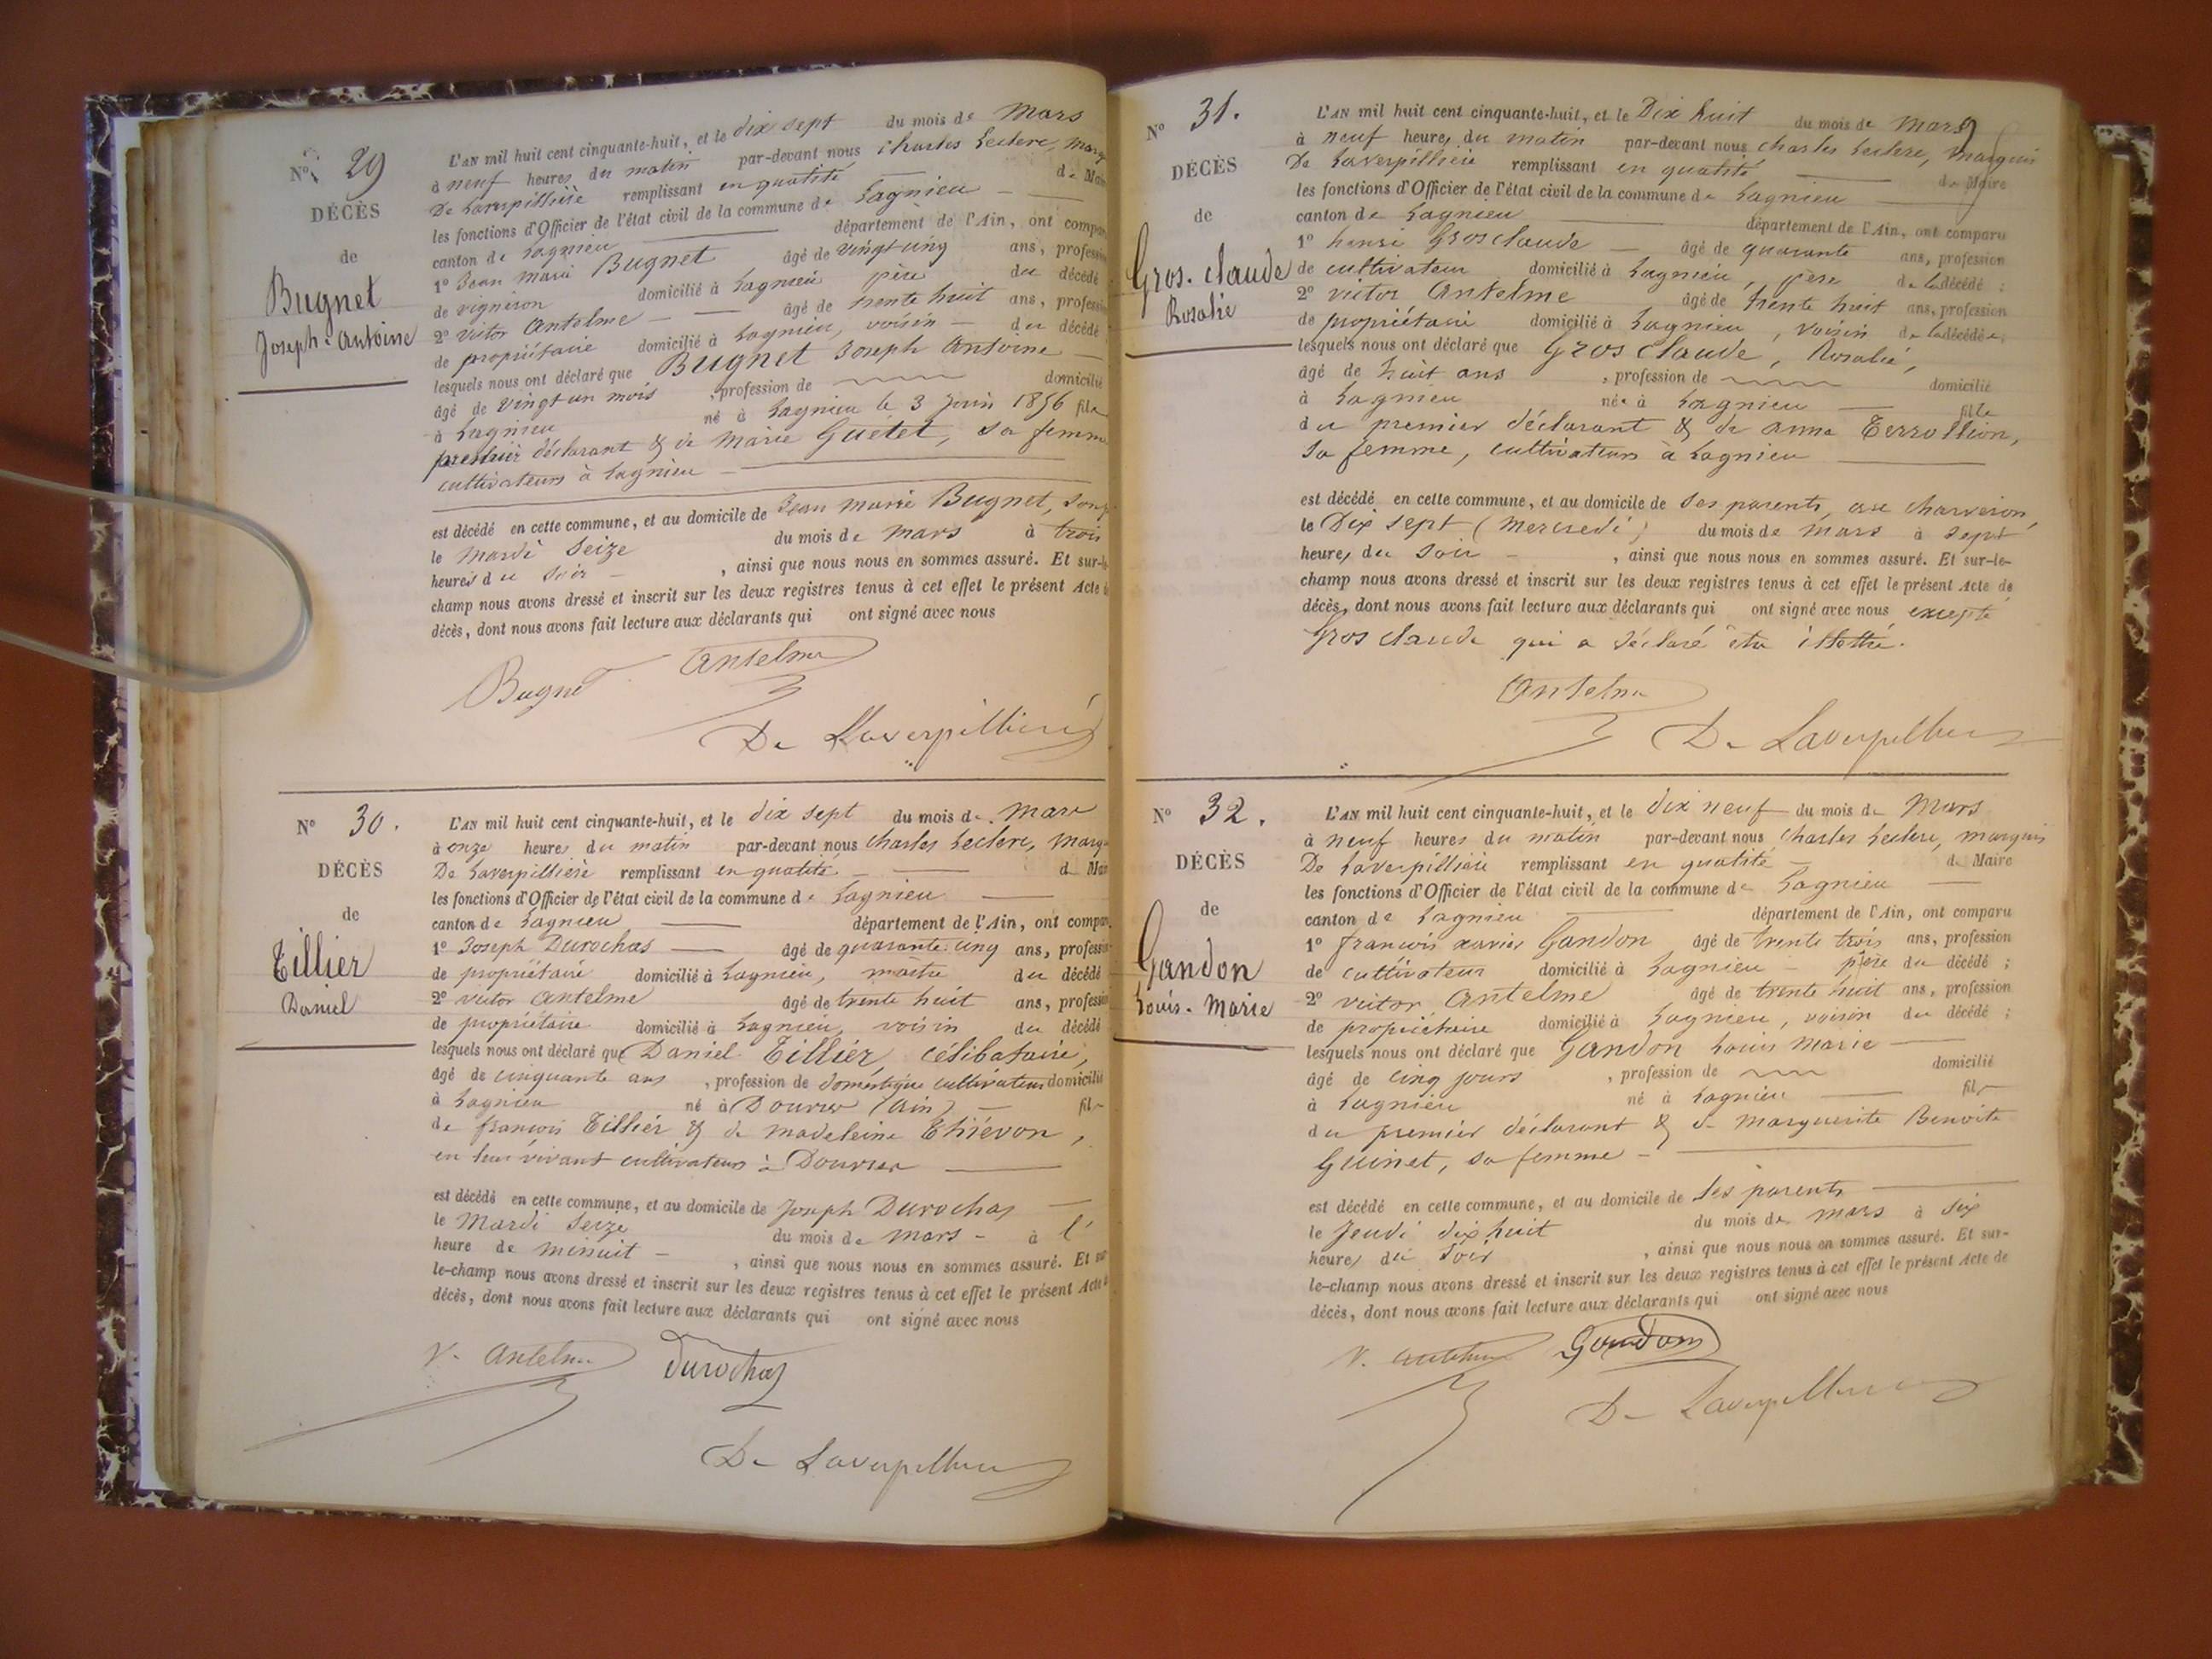 N° 29
DÉCÈS
de
Bugnet
Joseph-Antoine
L'AN mil huit cent cinquante-huit, et le dix sept du mois de Mars
à neuf heures du matin par-devant nous Charles Leclerc, marq
De Laverpillière remplissant en qualité de Mai
les fonctions d'Officier de l'état civil de la commune de Lagnieu
canton de Lagnieu département de l'Ain, ont compar
1° Jean Marie Bugnet âgé de vingt cinq ans, professio
de vigneron domicilié à Lagnieu père du décédé
2° victor Antelme âgé de trente huit ans, professio
de propriétaire domicilié à Lagnieu, voisin du décédé
lesquels nous ont déclaré que Bugnet Joseph Antoine
âgé de vingt un mois , profession de domicilié
à Lagnieu né à Lagnieu le 3 Juin 1856 fils
premier déclarant & de Marie Guétet, sa femme
cultivateurs à Lagnieu
est décédé en cette commune, et au domicile de Jean Marie Bugnet, son p
le Mardi seize du mois de mars à trois
heures du soir , ainsi que nous nous en sommes assuré. Et sur-le
champ nous avons dressé et inscrit sur les deux registres tenus à cet effet le présent Acte d
décès, dont nous avons fait lecture aux déclarants qui ont signé avec nous
Bugnet Antelme
De Laverpillière
N° 30.
DÉCÈS
de
Tillier
Daniel
L'AN mil huit cent cinquante-huit, et le dix sept du mois de Mars
à onze heures du matin par-devant nous Charles Leclerc, Marq
De Laverpillière remplissant en qualité de Mai
les fonctions d'Officier de l'état civil de la commune de Lagnieu
canton de Lagnieu département de l'Ain, ont compar
1° Joseph Durochas âgé de quarante-cinq ans, professio
de propriétaire domicilié à Lagnieu, maître du décédé
2° victor Antelme âgé de trente huit ans, professio
de propriétaire domicilié à Lagnieu, voisin du décédé
lesquels nous ont déclaré que Daniel Tillier célibataire,
âgé de cinquante ans , profession de domestique cultivateur domicilié
à Lagnieu né à Douvres (Ain) fils
de françois Tillier & de madeleine Thiévon,
en leur vivant cultivateurs à Douvres
est décédé en cette commune, et au domicile de Joseph Durochas
le Mardi seize du mois de mars à l'
heure de minuit , ainsi que nous nous en sommes assuré. Et sur
le-champ nous avons dressé et inscrit sur les deux registres tenus à cet effet le présent Acte d
décès, dont nous avons fait lecture aux déclarants qui ont signé avec nous
V. Antelme Durochas
De Laverpillière
N° 31.
DÉCÈS
de
Gros. claude
Rosalie
L'AN mil huit cent cinquante-huit, et le Dix huit du mois de Mars
à neuf heures du matin par-devant nous Charles Leclerc, Marquis
De Laverpillière remplissant en qualité de Maire
les fonctions d'Officier de l'état civil de la commune de Lagnieu
canton de Lagnieu département de l'Ain, ont comparu
1° henri Grosclaude âgé de quarante ans, profession
de cultivateur domicilié à Lagnieu, père de la décédé ;
2° victor Antelme âgé de trente huit ans, profession
de propriétaire domicilié à Lagnieu, voisin de la décédée,
lesquels nous ont déclaré que Gros claude, Rosalie,
âgé de huit ans , profession de domicilié
à Lagnieu née à Lagnieu fille
du premier déclarant & de anne Terrollion,
sa femme, cultivateurs à Lagnieu
est décédé en cette commune, et au domicile de ses parents, au charveron,
le Dix sept (Mercredi) du mois de mars à sept
heures du soir , ainsi que nous nous en sommes assuré. Et sur-le-
champ nous avons dressé et inscrit sur les deux registres tenus à cet effet le présent Acte de
décès, dont nous avons fait lecture aux déclarants qui ont signé avec nous excepté
Gros claude qui a déclaré être illettré.
Antelme
De Laverpillière
N° 32.
DÉCÈS
de
Gandon
Louis-Marie
L'AN mil huit cent cinquante-huit, et le dix neuf du mois de Mars
à neuf heures du matin par-devant nous Charles Leclerc, marquis
De Laverpillière remplissant en qualité de Maire
les fonctions d'Officier de l'état civil de la commune de Lagnieu
canton de Lagnieu département de l'Ain, ont comparu
1° françois xavier Gandon âgé de trente trois ans, profession
de cultivateur domicilié à Lagnieu père du décédé ;
2° victor Antelme âgé de trente huit ans, profession
de propriétaire domicilié à Lagnieu, voisin du décédé ;
lesquels nous ont déclaré que Gandon Louis Marie
âgé de cinq jours , profession de domicilié
à Lagnieu né à Lagnieu fils
du premier déclarant & de Marguerite Benoite
Guinet, sa femme
est décédé en cette commune, et au domicile de ses parents
le Jeudi dix huit du mois de mars à six
heures du soir , ainsi que nous nous en sommes assuré. Et sur-
le-champ nous avons dressé et inscrit sur les deux registres tenus à cet effet le présent Acte de
décès, dont nous avons fait lecture aux déclarants qui ont signé avec nous
V. Antelme Gandon
De Laverpillière